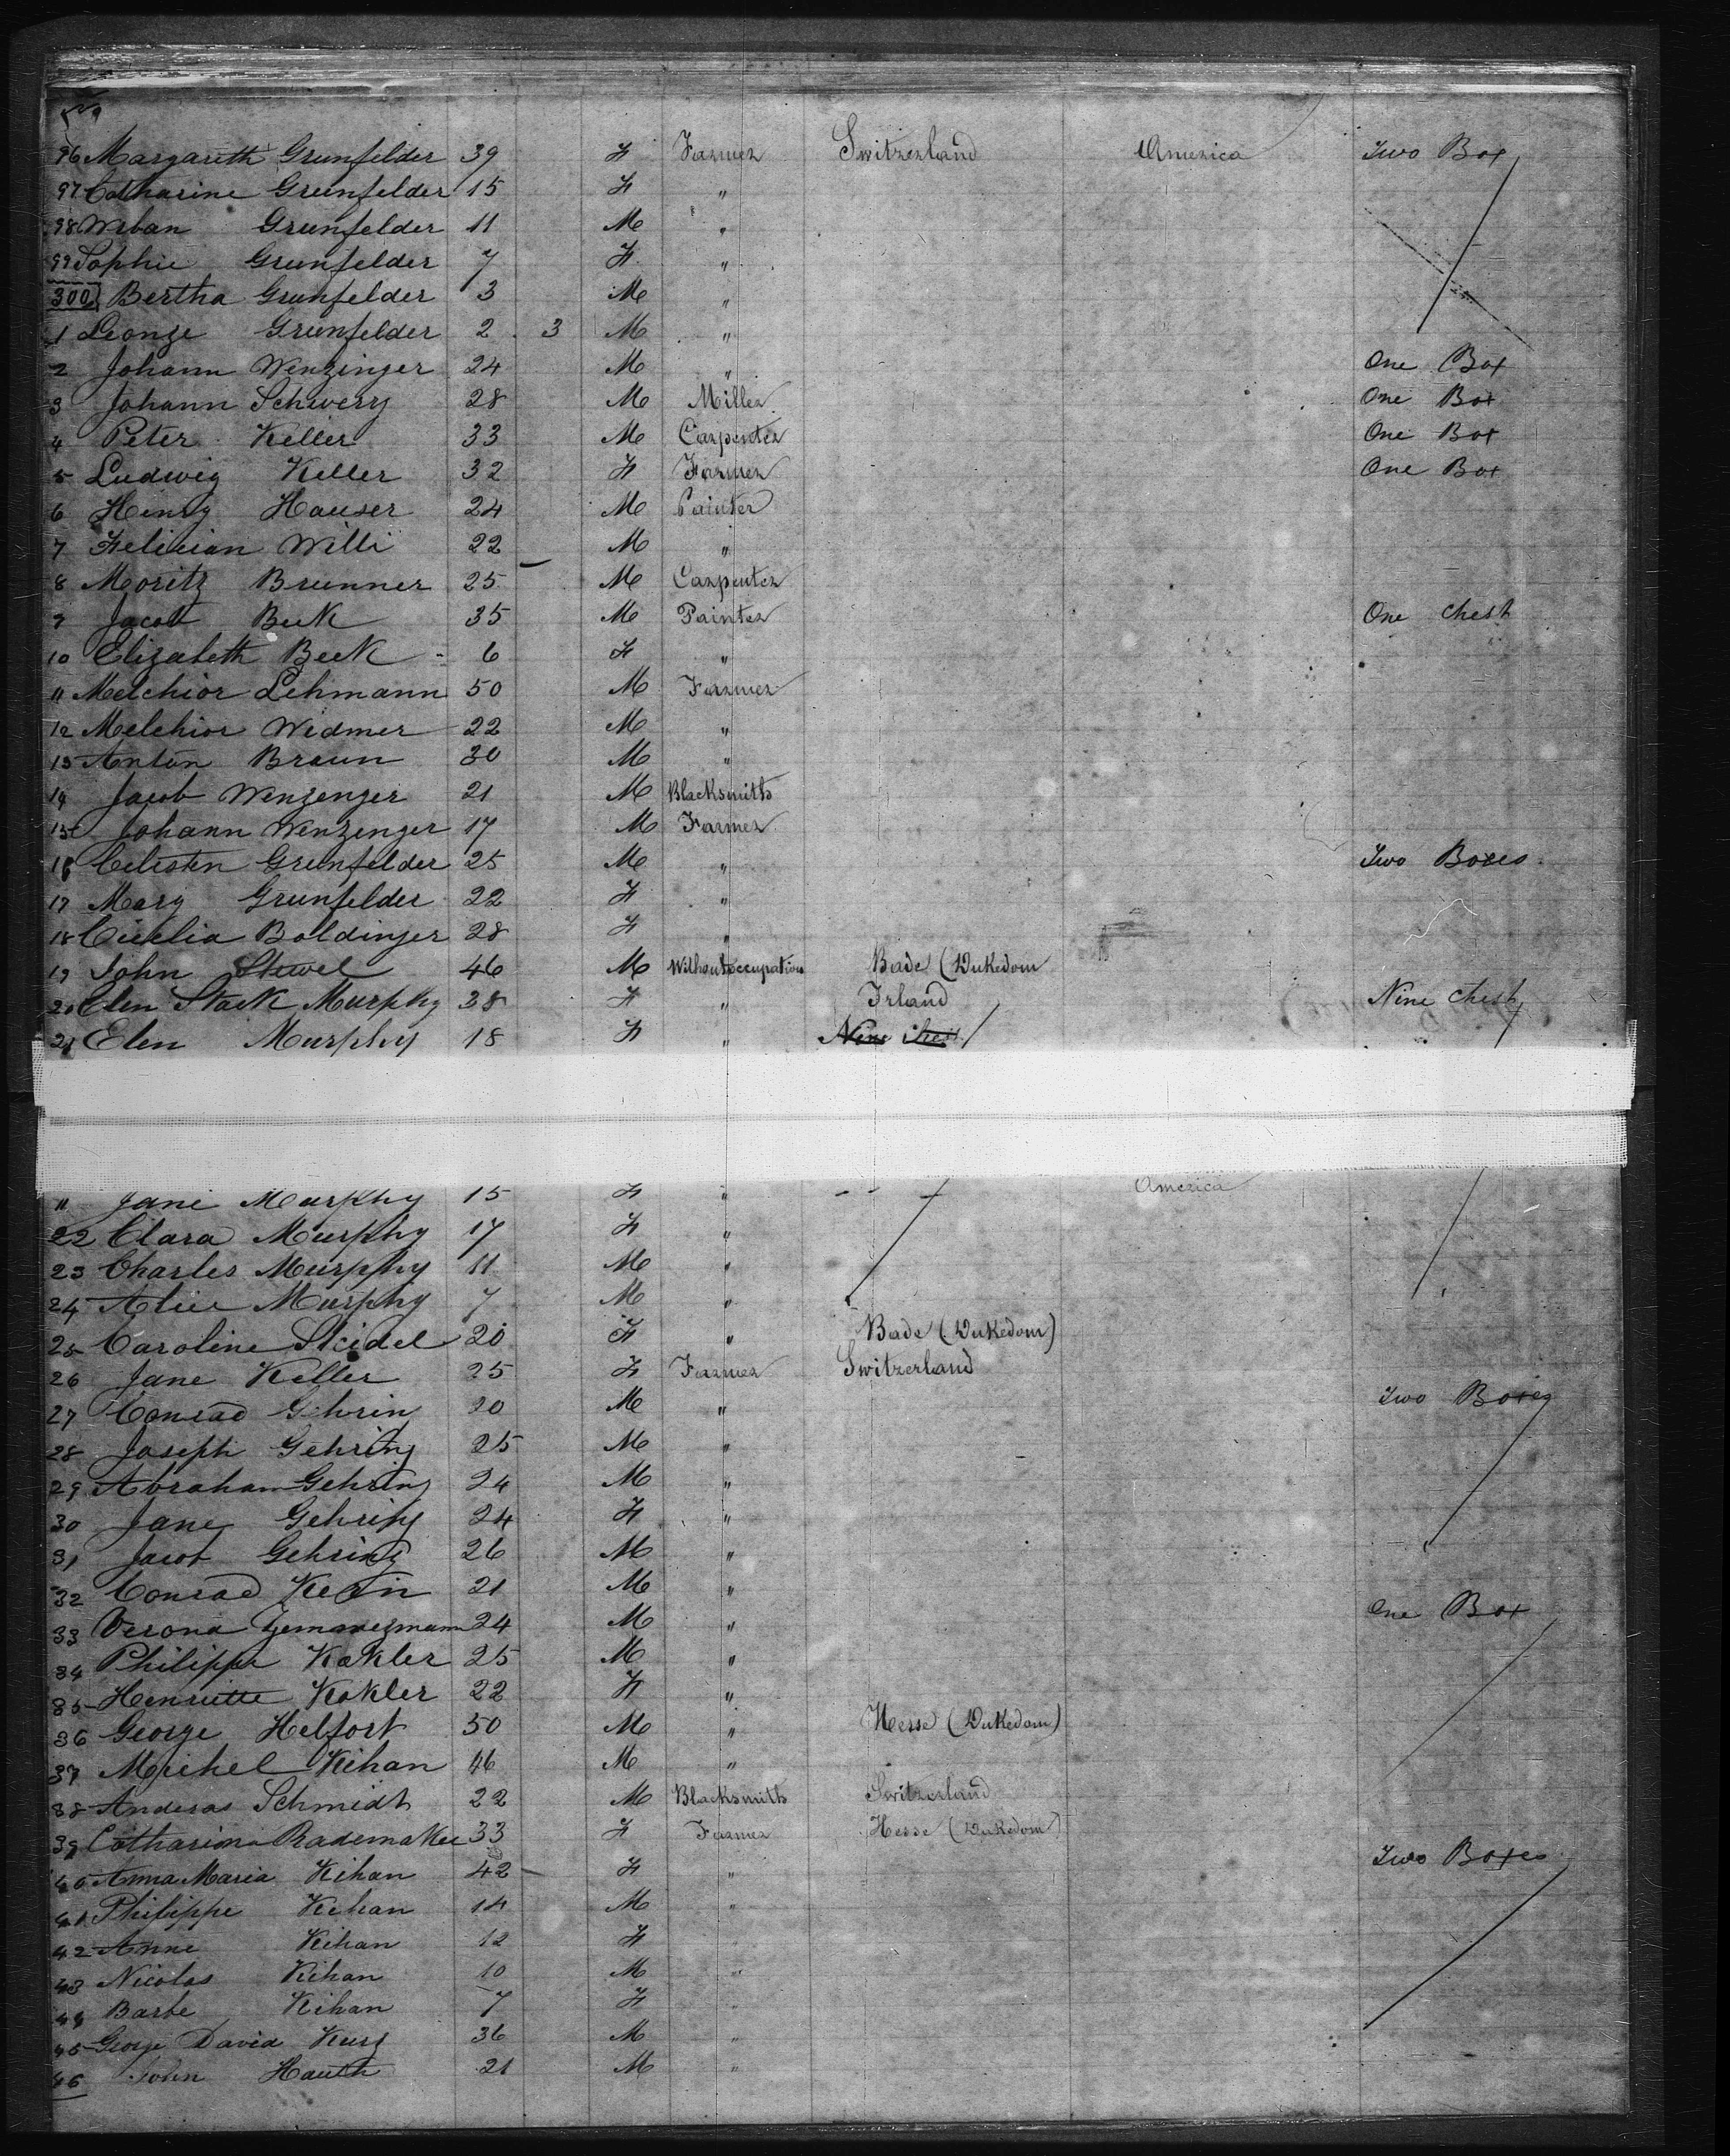 No
96 Margareth Grunfelder 39 F Farmer Switzerland America Two Box
97 Catharine Grunfelder 15 F "
98 Urban Grunfelder 11 M "
99 Sophie Grunfelder 7 F "
300 Bertha Grunfelder 3 M "
1 Leonze Grunfelder 2 3 M "
2 Johann Wenzinger 24 M " One Box
3 Johann Schwery 28 M Miller One Box
4 Peter Keller 33 M Carpenter One Box
5 Ludwig Keller 32 F Farmer One Box
6 Henry Hauser 24 M Painter
7 Felician Willi 22 M "
8 Moritz Brunner 25 M Carpenter
9 Jacob Beek 35 M Painter One Chest
10 Elizabeth Beek 6 F "
11 Melchior Lehmann 50 M Farmer
12 Melchior Widmer 22 M "
13 Anton Braun 30 M "
14 Jacob Wenzenger 21 M Blacksmith
15 Johann Wenzenger 17 M Farmer
16 Celisten Grunfelder 25 M " Two Boxes
17 Mary Grunfelder 22 F "
18 Cicelia Boldinger 28 F "
19 John 46 M Without occupation Bade (Dukedom
20 Elen Stack Murphy 38 F " Irland Nine Chest
21 Elen Murphy 18 F " Nine Chest
" Jane Murphy 15 F " America
22 Clara Murphy 17 F "
23 Charles Murphy 11 M "
24 Alice Murphy 7 M "
25 Caroline Steidel 20 F " Bade (Dukedom)
26 Jane Keller 25 F Farmer Switzerland
27 Conrad Gehring 20 M " Two Boxes
28 Joseph Gehring 25 M "
29 Abraham Gehring 24 M "
30 Jane Gehring 24 F "
31 Jacob Gehring 26 M "
32 Conrad 21 M "
33 Verona 24 M " One Box
34 Philippe Kokler 25 M "
35 Henriette Kokler 22 F "
36 George Helfort 50 M " Hesse (Dukedom)
37 Michel Kihan 46 M "
38 Anderas Schmidt 22 M Blacksmith Switzerland
39 Catharina Rademaker 33 F Farmer Hesse (Dukedom)
40 Anna Maria Kihan 42 F " Two Boxes
41 Philippe Kihan 14 M "
42 Anne Kihan 12 F
43 Nicolas Kihan 10 M "
44 Barbe Kihan 7 F
45 George David Kurz 36 M "
46 John Hauth 21 M "